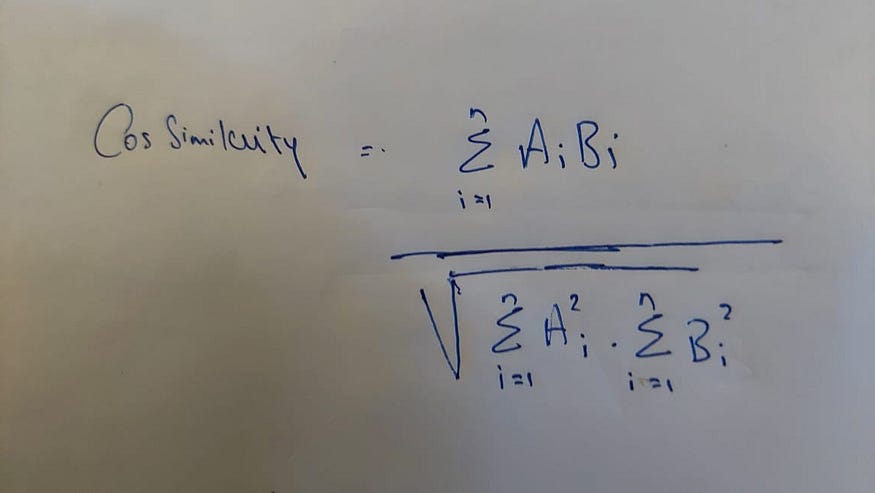 Cos Similarity = \frac{\sum_{i=1}^{n} A_i B_i}{\sqrt{\sum_{i=1}^{n} A_i^2 \cdot \sum_{i=1}^{n} B_i^2}}